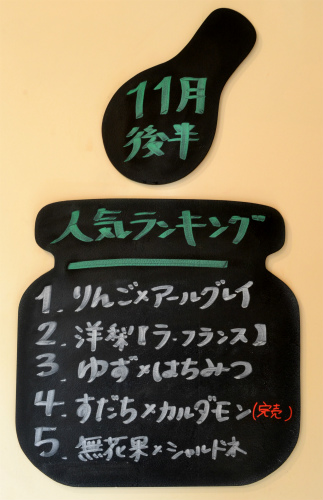 11月
後半
人気ランキング
1. りんご×アールグレイ
2. 洋梨【ラ・フランス】
3. ゆず×はちみつ
4. すだち×カルダモン(完売)
5. 無花果×シャルドネ